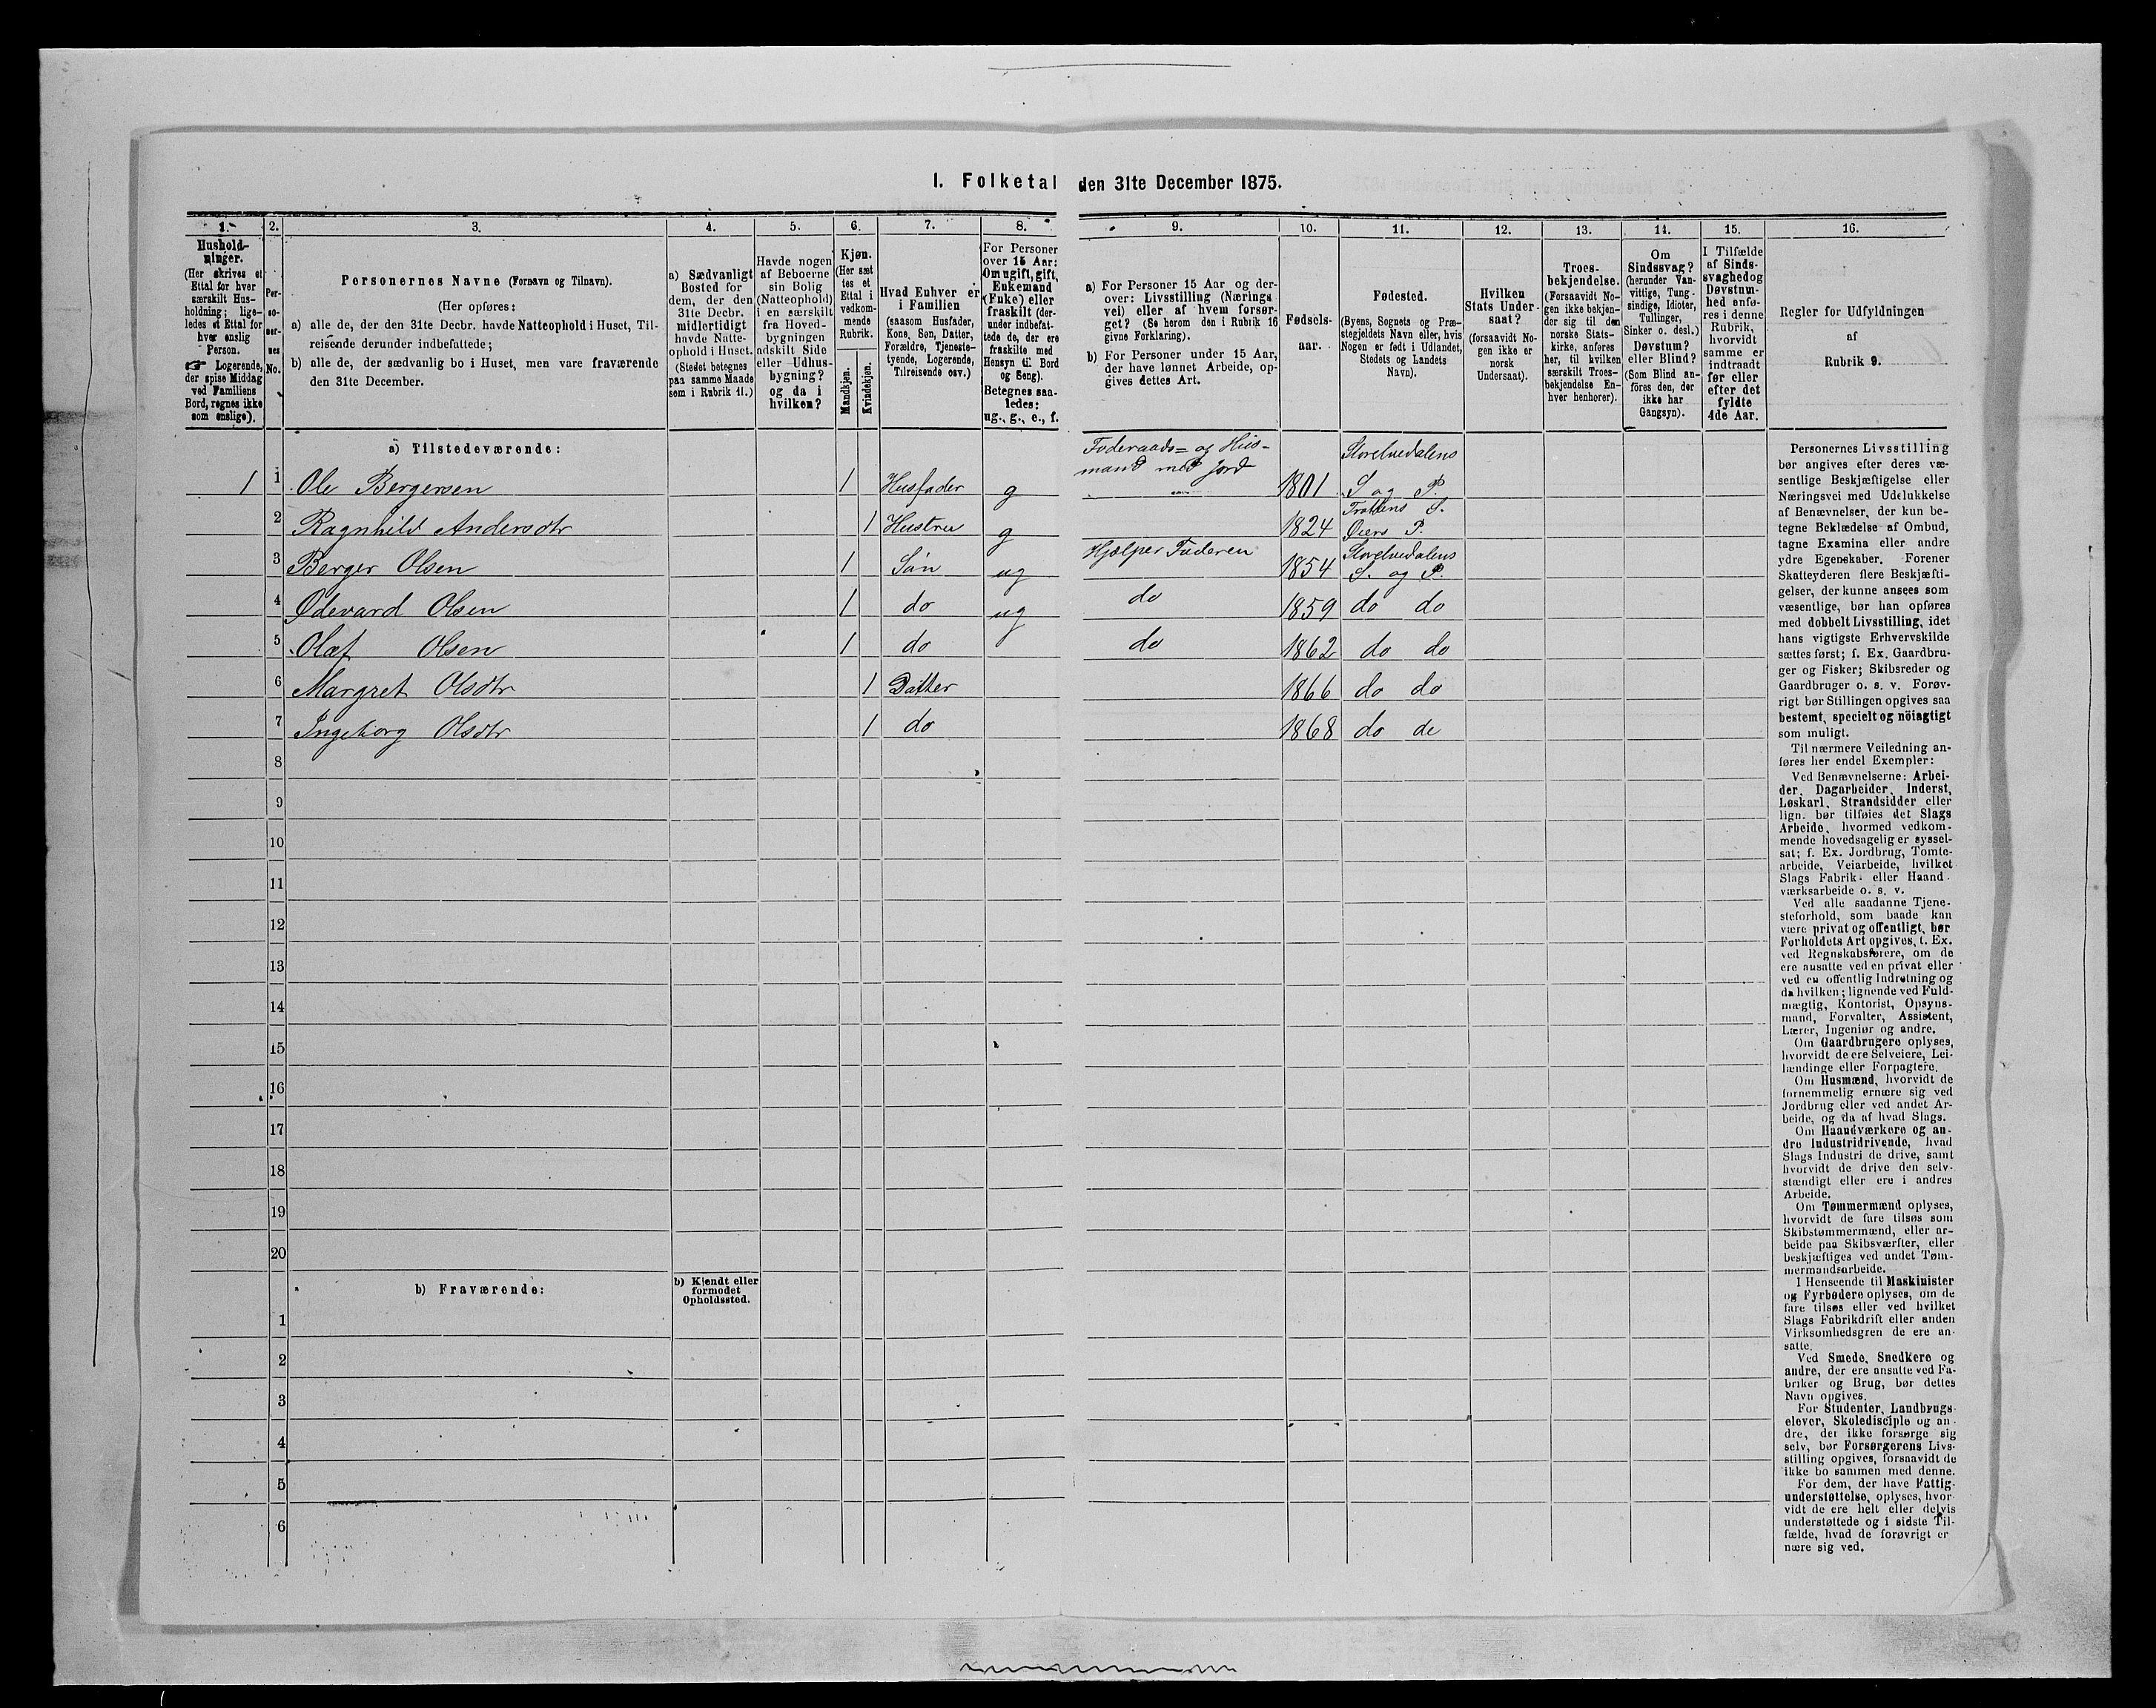 I. Folketal den 31te December 1875.
1. 2. 3. 4. 5. 6. 7. 8. 9. 10. 11. 12. 13. 14. 15. 16.
Hushold-
ninger.
(Her skrives et
Ettal for hver
særskilt Hus-
holdning; lige-
ledes et Ettal for
hver enslig
Person.
☞ Logerende,
der spise Middag
ved Familiens
Bord, regnes ikke
som enslige).
Per-
so-
ner-
nes
No.
Personernes Navne (Fornavn og Tilnavn).
(Her opføres:
a) alle de, der den 31te Decbr. havde Natteophold i Huset, Til-
reisende derunder indbefattede;
b) alle de, der sædvanlig bo i Huset, men vare fraværende
den 31te December.
a) Sædvanligt
Bosted for
dem, der den
31te Decbr.
midlertidigt
havde Natte-
ophold i Huset.
(Stedet betegnes
paa samme Maade
som i Rubrik 11.)
Havde nogen
af Beboerne
sin Bolig
(Natteophold)
i en særskilt
fra Hoved-
bygningen
adskilt Side
eller Udhus-
bygning?
og da i
hvilken?
Kjøn.
(Her sæt
tes et
Ettal i
vedkom-
mende
Rubrik.
Mandkjøn.
Kvindekjøn.
Hvad Enhver er
i Familien
(saasom Husfader,
Kone, Søn, Datter,
Forældre, Tjeneste-
tyende, Logerende,
Tilreisende osv.)
For Personer
over 15 Aar:
Om ugift, gift,
Enkemand
(Enke) eller
fraskilt (der-
under indbefat-
tede de, der ere
fraskilte med
Hensyn til Bord
og Seng).
Betegnes saa-
ledes:
ug., g., e., f.
a) For Personer 15 Aar og der-
over: Livsstilling (Nærings
vei) eller af hvem forsør-
get? (Se herom den i Rubrik 16
givne Forklaring).
b) For Personer under 15 Aar,
der have lønnet Arbeide, op-
gives dettes Art.
Fødsels-
aar.
Fødested.
(Byens, Sognets og Præ-
stegjeldets Navn eller, hvis
Nogen er født i Udlandet,
Stedets og Landets
Navn).
Hvilken
Stats Under-
saat?
(forsaavidt No-
gen ikke er
norsk
Undersaat).
Troes-
bekjendelse.
(Forsaavidt No-
gen ikke bekjen-
der sig til den
norske Stats-
kirke, anføres
her, til hvilken
særskilt Troes-
bekjendelse En-
hver henhører).
Om
Sindssvag?
(herunder Van-
vittige, Tung-
sindige, Idioter,
Tullinger,
Sinker o. desl.)
Døvstum?
eller Blind?
(Som Blind an-
föres den, der
ikke har
Gangsyn).
I Tilfælde
af Sinds-
svaghed og
Døvstum-
hed anfø-
res i denne
Rubrik,
hvorvidt
samme er
indtraadt
før eller
efter det
fyldte
4de Aar.
Regler for Udfyldningen
af
Rubrik 9.
a) Tilstedeværende:
Foderaads= og Hus-
mand med Jord
Storelvedalens
1 1 Ole Bergersen 1 Husfader g 1801 S og P.
Trottens S.
2 Ragnhild Andersdtr 1 Hustru g 1824 Øiers P.
3 Berger Olsen 1 Søn ug Hjælper Faderen 1854 Storelvedalens
S. og P.
4 Edevard Olsen 1 do ug do 1859 do do
5 Olaf Olsen 1 do do 1862 do do
6 Margret Olsdtr 1 Datter 1866 do do
7 Ingeborg Olsdtr 1 do 1868 do do
8
9
10
11
12
13
14
15
16
17
18
19
20
b) Fraværende:
b) Kjendt eller
formodet
Opholdssted.
1
2
3
4
5
6
Personernes Livsstilling
bør angives efter deres væ-
sentlige Beskjæftigelse eller
Næringsvei med Udelukkelse
af Benævnelser, der kun be-
tegne Beklædelse af Ombud,
tagne Examina eller andre
ydre Egenskaber. Forener
Skatteyderen flere Beskjæfti-
gelser, der kunne ansees som
væsentlige, bør han opføres
med dobbelt Livsstilling, idet
hans vigtigste Erhvervskilde
sættes først; f. Ex. Gaardbru-
ger og Fisker; Skibsreder og
Gaardbruger o. s. v. Forøv-
rigt bør Stillingen opgives saa
bestemt, specielt og nöiagtigt
som muligt.
Til nærmere Veiledning an-
føres her endel Exempler:
Ved Benævnelserne: Arbei-
der, Dagarbeider, Inderst,
Løskarl, Strandsidder eller
lign. bør tilføies det Slags
Arbeide, hvormed vedkom-
mende hovedsagelig er syssel-
sat; f. Ex. Jordbrug, Tomte-
arbeide, Veiarbeide, hvilket
Slags Fabrik- eller Haand-
værksarbeide o. s. v.
Ved alle saadanne Tjene-
steforhold, som baade kan
være privat og offentligt, bør
Forholdets Art opgives, f. Ex.
ved Regnskabsførere, om de
ere ansatte ved en privat eller
ved en offentlig Indretning og
da hvilken; lignende ved Fuld-
mægtig, Kontorist, Opsyns-
mand, Forvalter, Assistent,
Lærer, Ingeniør og andre.
Om Gaardbrugere oplyses,
hvorvidt de ere Selveiere, Lei-
lændinge eller Forpagtere.
Om Husmænd, hvorvidt de
fornemmelig ernære sig ved
Jordbrug eller ved andet Ar-
beide, og da af hvad Slags.
Om Haandværkere og an-
dre Industridrivende, hvad
Slags Industri de drive, samt
hvorvidt de drive den selv-
stændigt eller ere i andres
Arbeide.
Om Tømmermænd oplyses,
hvorvidt de fare tilsøs som
Skibstømmermænd, eller ar-
beide paa Skibsværfter, eller
beskjæftiges ved andet Tøm-
mermandsarbeide.
I Henseende til Maskinister
og Fyrbødere oplyses, om de
fare tilsøs eller ved hvilket
Slags Fabrikdrift eller anden
Virksomhedsgren de ere an-
satte.
Ved Smede, Snedkere og
andre, der ere ansatte ved Fa-
briker og Brug, bør dettes
Navn opgives.
For Studenter, Landbrugs-
elever, Skoledisciple og an-
dre, der ikke forsørge sig
selv, bør Forsørgerens Livs-
stilling opgives, forsaavidt de
ikke bo sammen med denne.
For dem, der have Fattig-
understøttelse, oplyses, hvor-
vidt de ere helt eller delvis
understøttede og i sidste Til-
fælde, hvad de forøvrigt er
nære sig ved.